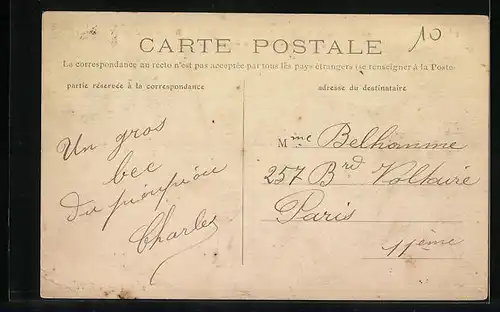 10
CARTE POSTALE
La correspondance au recto n'est pas acceptée par tous les pays étrangers (se renseigner à la Poste
partie réservée à la correspondance
adresse du destinataire
Un gros
bec
du pioupiou
Charles
Mme Belhomme
257 Bred Voltaire
Paris
11ème